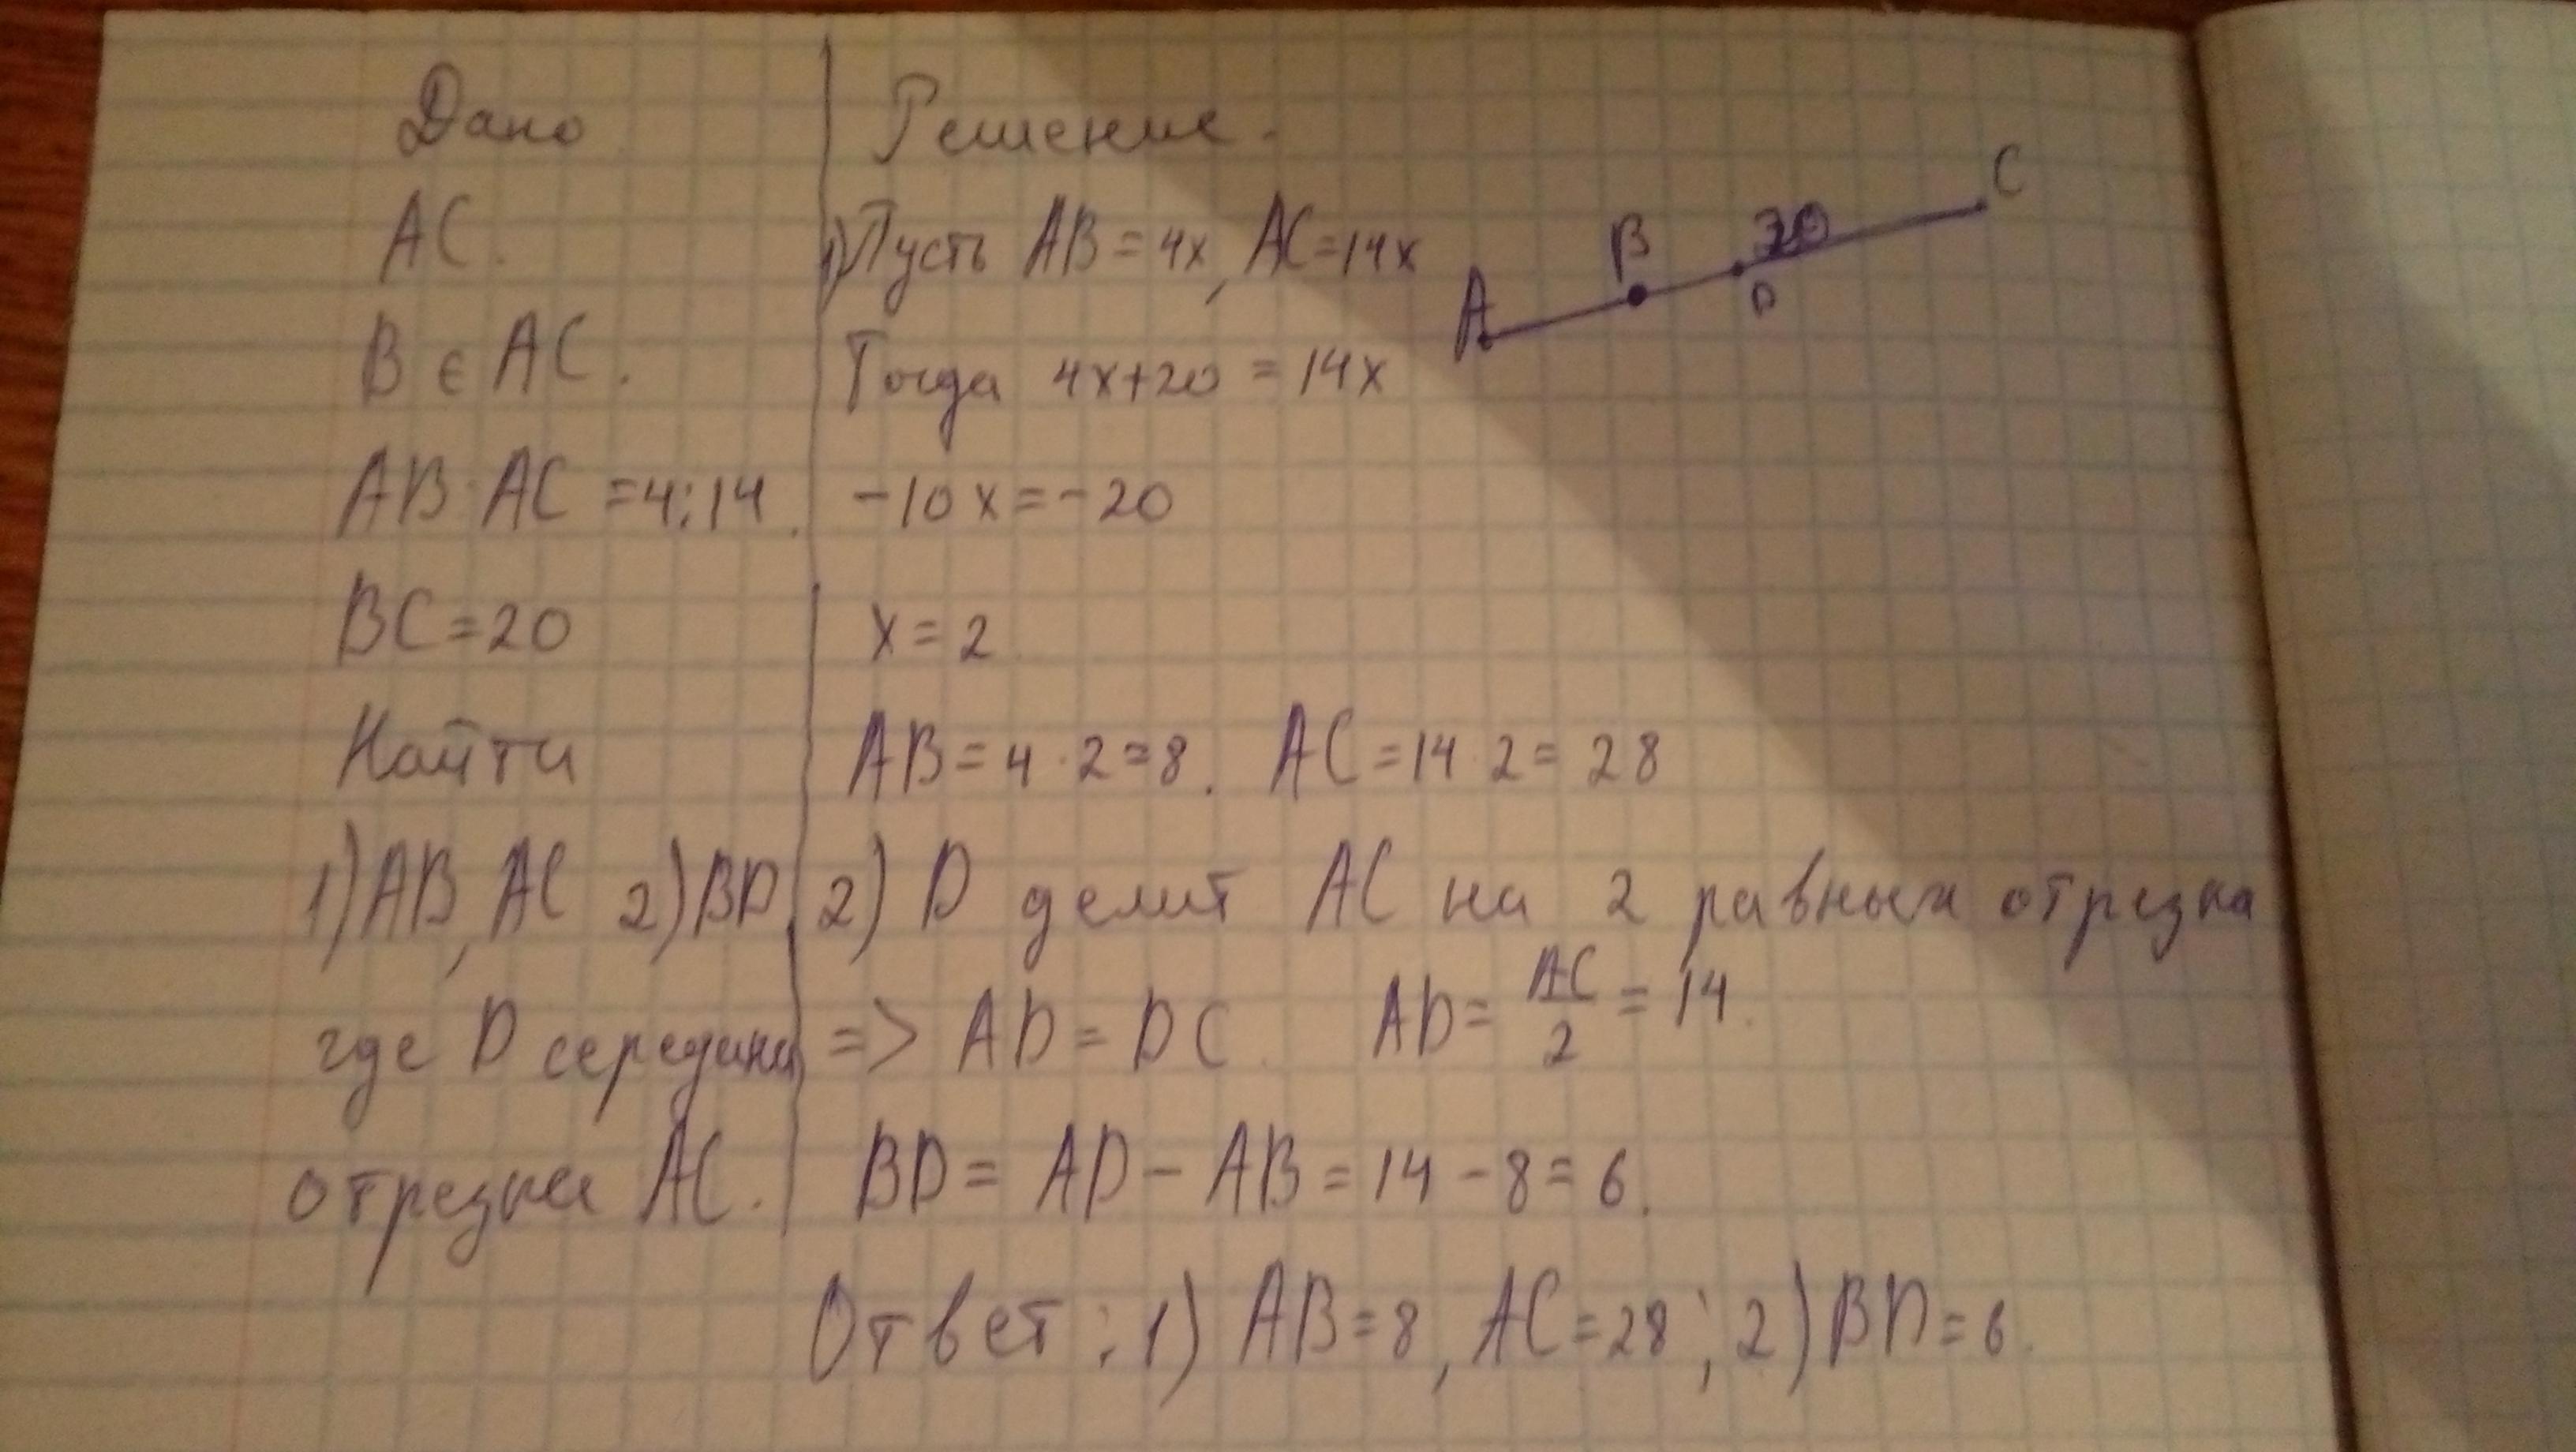 Дано
AC.
B ∈ AC.
AB:AC = 4:14.
BC = 20
Найти
1) AB, AC 2) BD,
где D середина
отрезка AC.
Решение.
1) Пусть AB = 4x, AC = 14x
Тогда 4x + 20 = 14x
-10x = -20
x = 2
AB = 4 · 2 = 8. AC = 14 · 2 = 28
2) D делит AC на 2 равных отрезка
=> AD = DC. AD = AC/2 = 14.
BD = AD - AB = 14 - 8 = 6.
Ответ: 1) AB = 8, AC = 28; 2) BD = 6.
A
B
D
C